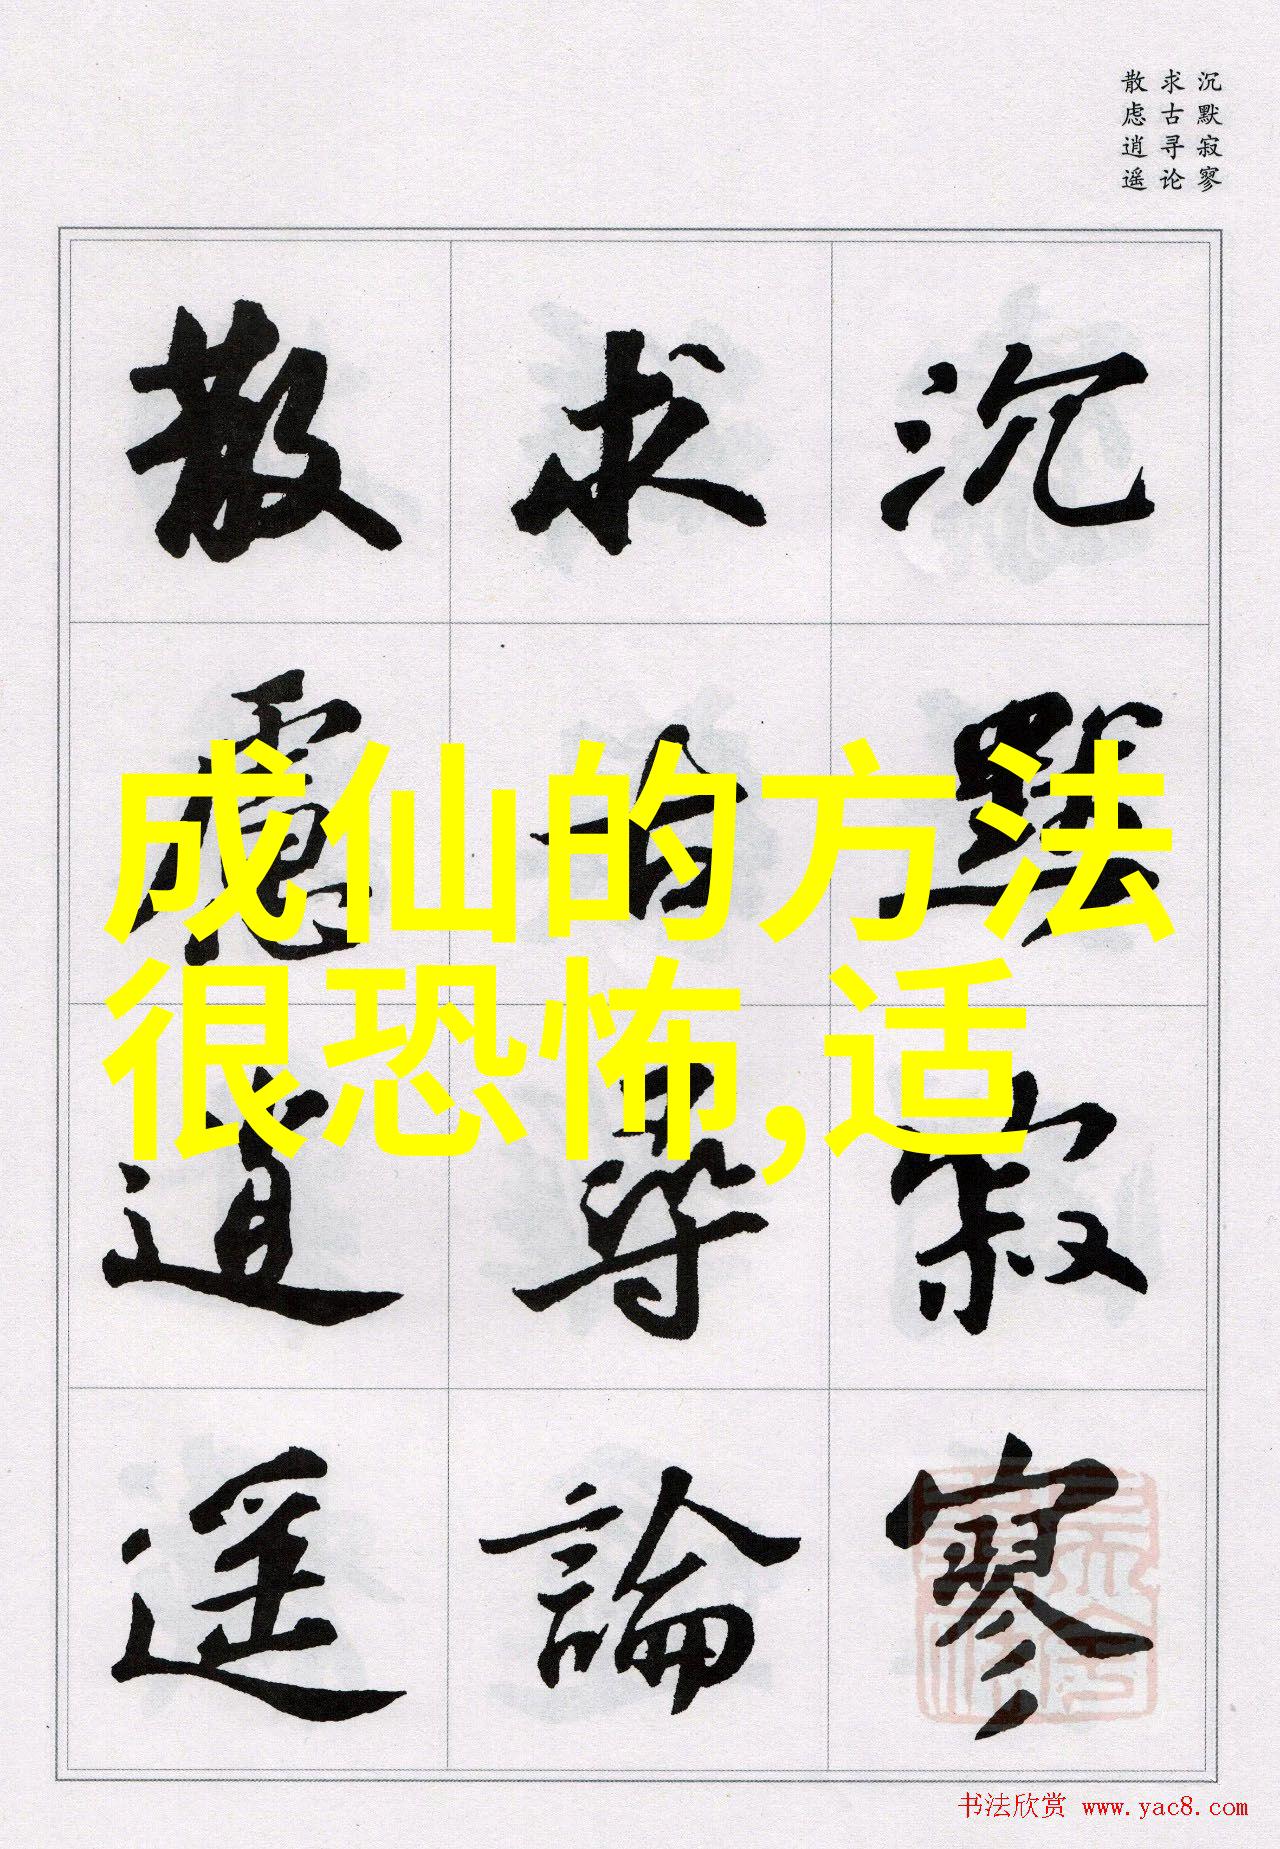 沉默寂寥
求古寻论
散虑逍遥
沉默寂寥
求古寻論
散慮逍遥
成仙的方法
很恐怖,适
书法欣赏 www.yac8.com